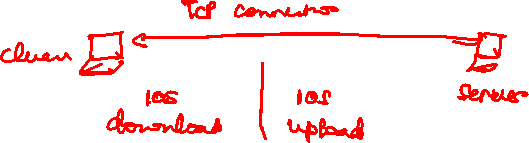 TCP connection
client
server
10s
download
10s
upload